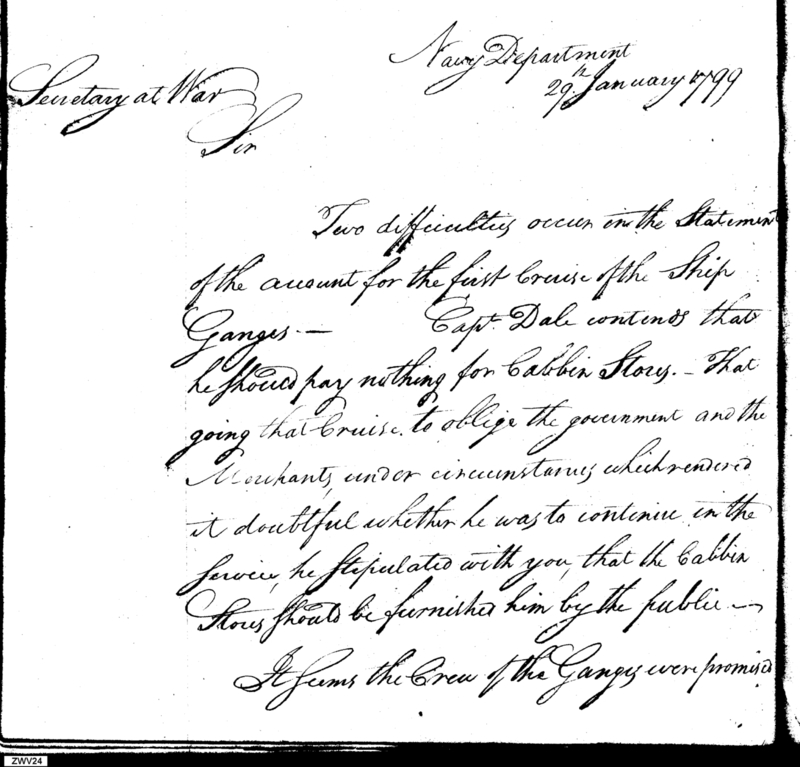 Navy Department
29th January 1799
Secretary at War
Sir
Two difficulties occur in the Statement
of the account for the first Cruise of the Ship
Ganges. — Capt. Dale contends that
he should pay nothing for Cabbin Stores. — That
going that Cruise to oblige the government and the
Merchants, under circumstances which rendered
it doubtful whether he was to continue in the
service, he stipulated with you, that the Cabbin
Stores should be furnished him by the public —
It seems the Crew of the Ganges were promised
ZWV24